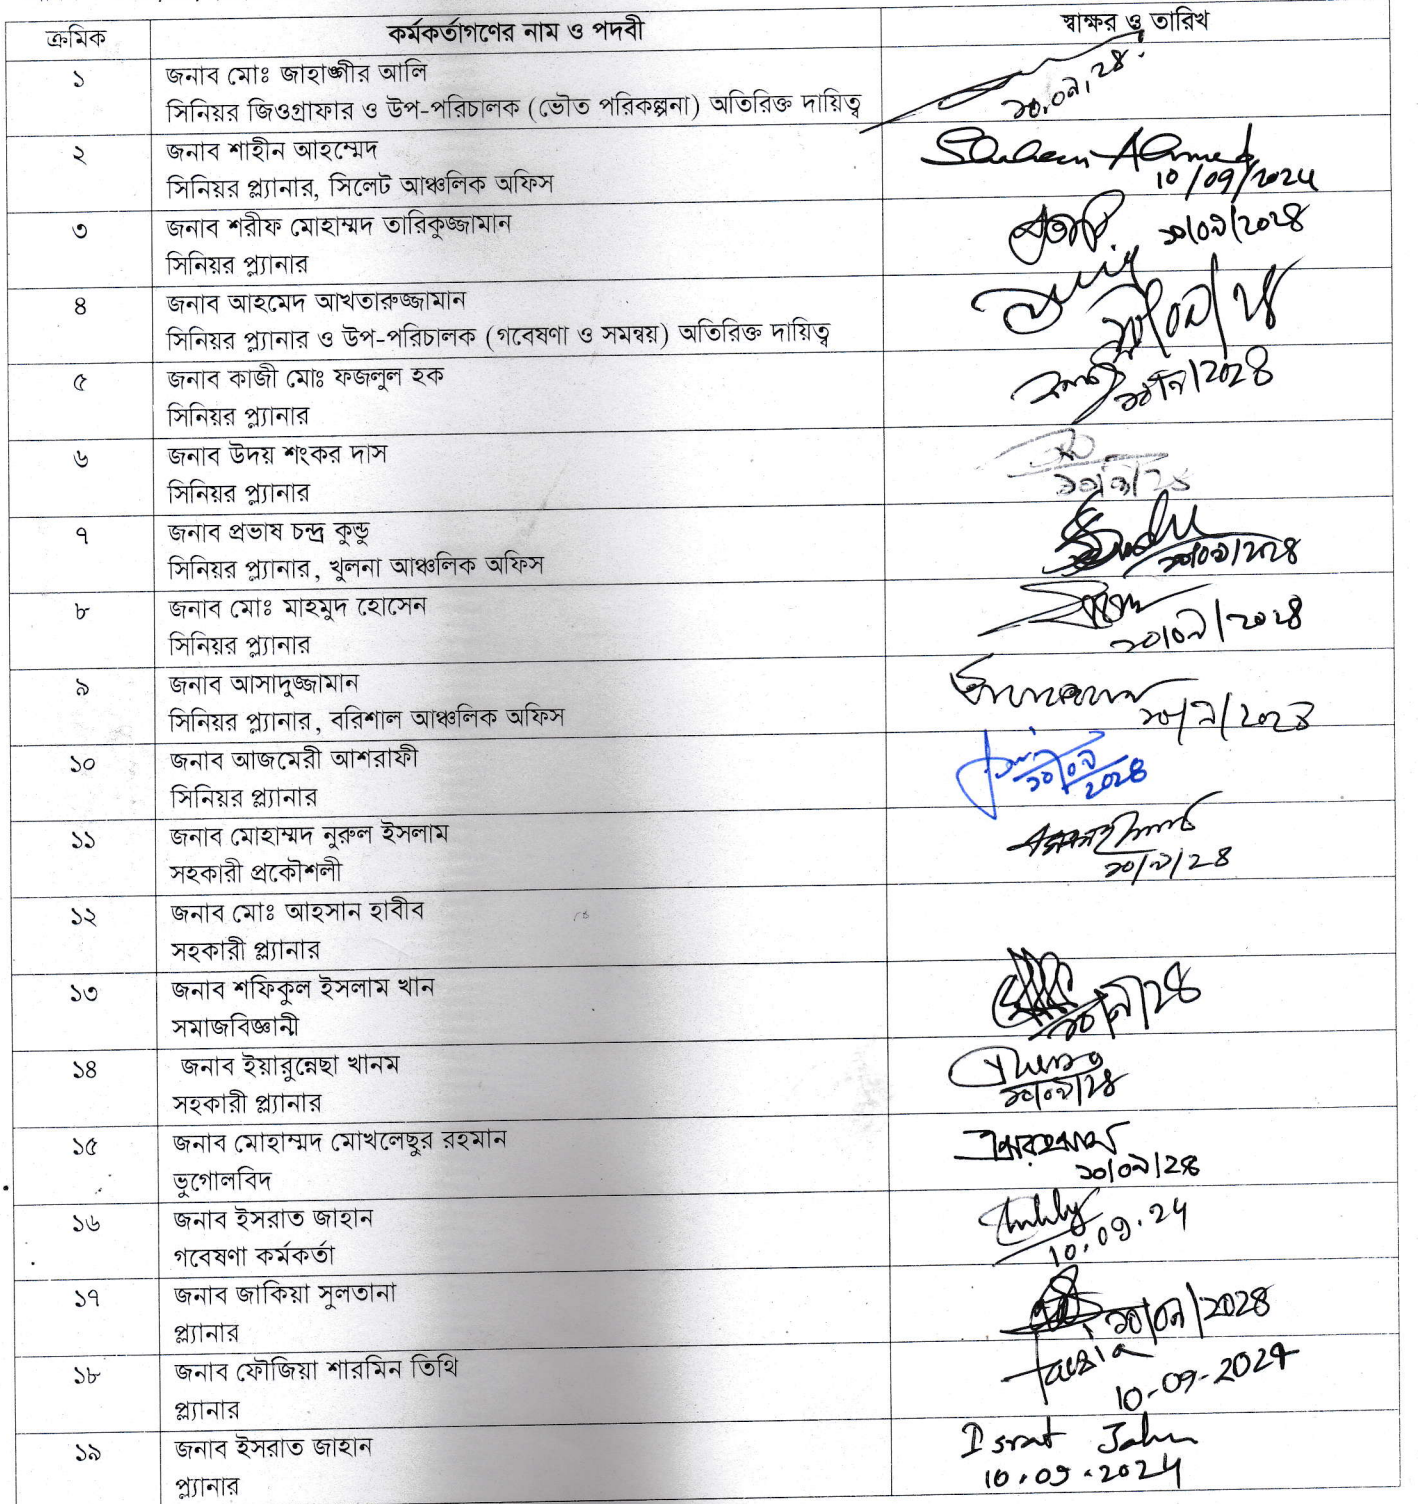 ক্রমিক কর্মকর্তাগণের নাম ও পদবী স্বাক্ষর ও তারিখ
১ জনাব মোঃ জাহাঙ্গীর আলি
সিনিয়র জিওগ্রাফার ও উপ-পরিচালক (ভৌত পরিকল্পনা) অতিরিক্ত দায়িত্ব
১০.০৯.২৪.
২ জনাব শাহীন আহম্মেদ
Shaheen Ahmed
সিনিয়র প্ল্যানার, সিলেট আঞ্চলিক অফিস
10/09/2024
৩ জনাব শরীফ মোহাম্মদ তারিকুজ্জামান
১০/০৯/২০২৪
সিনিয়র প্ল্যানার
৪ জনাব আহমেদ আখতারুজ্জামান
১০/০৯/২৪
সিনিয়র প্ল্যানার ও উপ-পরিচালক (গবেষণা ও সমন্বয়) অতিরিক্ত দায়িত্ব
৫ জনাব কাজী মোঃ ফজলুল হক
১০/৯/২০২৪
সিনিয়র প্ল্যানার
৬ জনাব উদয় শংকর দাস
সিনিয়র প্ল্যানার
১০/৯/২৪
৭ জনাব প্রভাষ চন্দ্র কুন্ডু
সিনিয়র প্ল্যানার, খুলনা আঞ্চলিক অফিস
১০/০৯/২০২৪
৮ জনাব মোঃ মাহমুদ হোসেন
সিনিয়র প্ল্যানার
১০/০৯/২০২৪
৯ জনাব আসাদুজ্জামান
সিনিয়র প্ল্যানার, বরিশাল আঞ্চলিক অফিস
১০/৯/২০২৪
১০ জনাব আজমেরী আশরাফী
১০/০৯
সিনিয়র প্ল্যানার
২০২৪
১১ জনাব মোহাম্মদ নুরুল ইসলাম
সহকারী প্রকৌশলী
১০/৯/২৪
১২ জনাব মোঃ আহসান হাবীব
সহকারী প্ল্যানার
১৩ জনাব শফিকুল ইসলাম খান
সমাজবিজ্ঞানী
১০/৯/২৪
১৪ জনাব ইয়ারুন্নেছা খানম
সহকারী প্ল্যানার
১০/০৯/২৪
১৫ জনাব মোহাম্মদ মোখলেছুর রহমান
ভুগোলবিদ
১০/০৯/২৪
১৬ জনাব ইসরাত জাহান
গবেষণা কর্মকর্তা
10.09.24
১৭ জনাব জাকিয়া সুলতানা
১০/০৯/২০২৪
প্ল্যানার
১৮ জনাব ফৌজিয়া শারমিন তিথি
Fauzia
প্ল্যানার
10-09-2024
১৯ জনাব ইসরাত জাহান
Israt Jahan
প্ল্যানার
10.09.2024